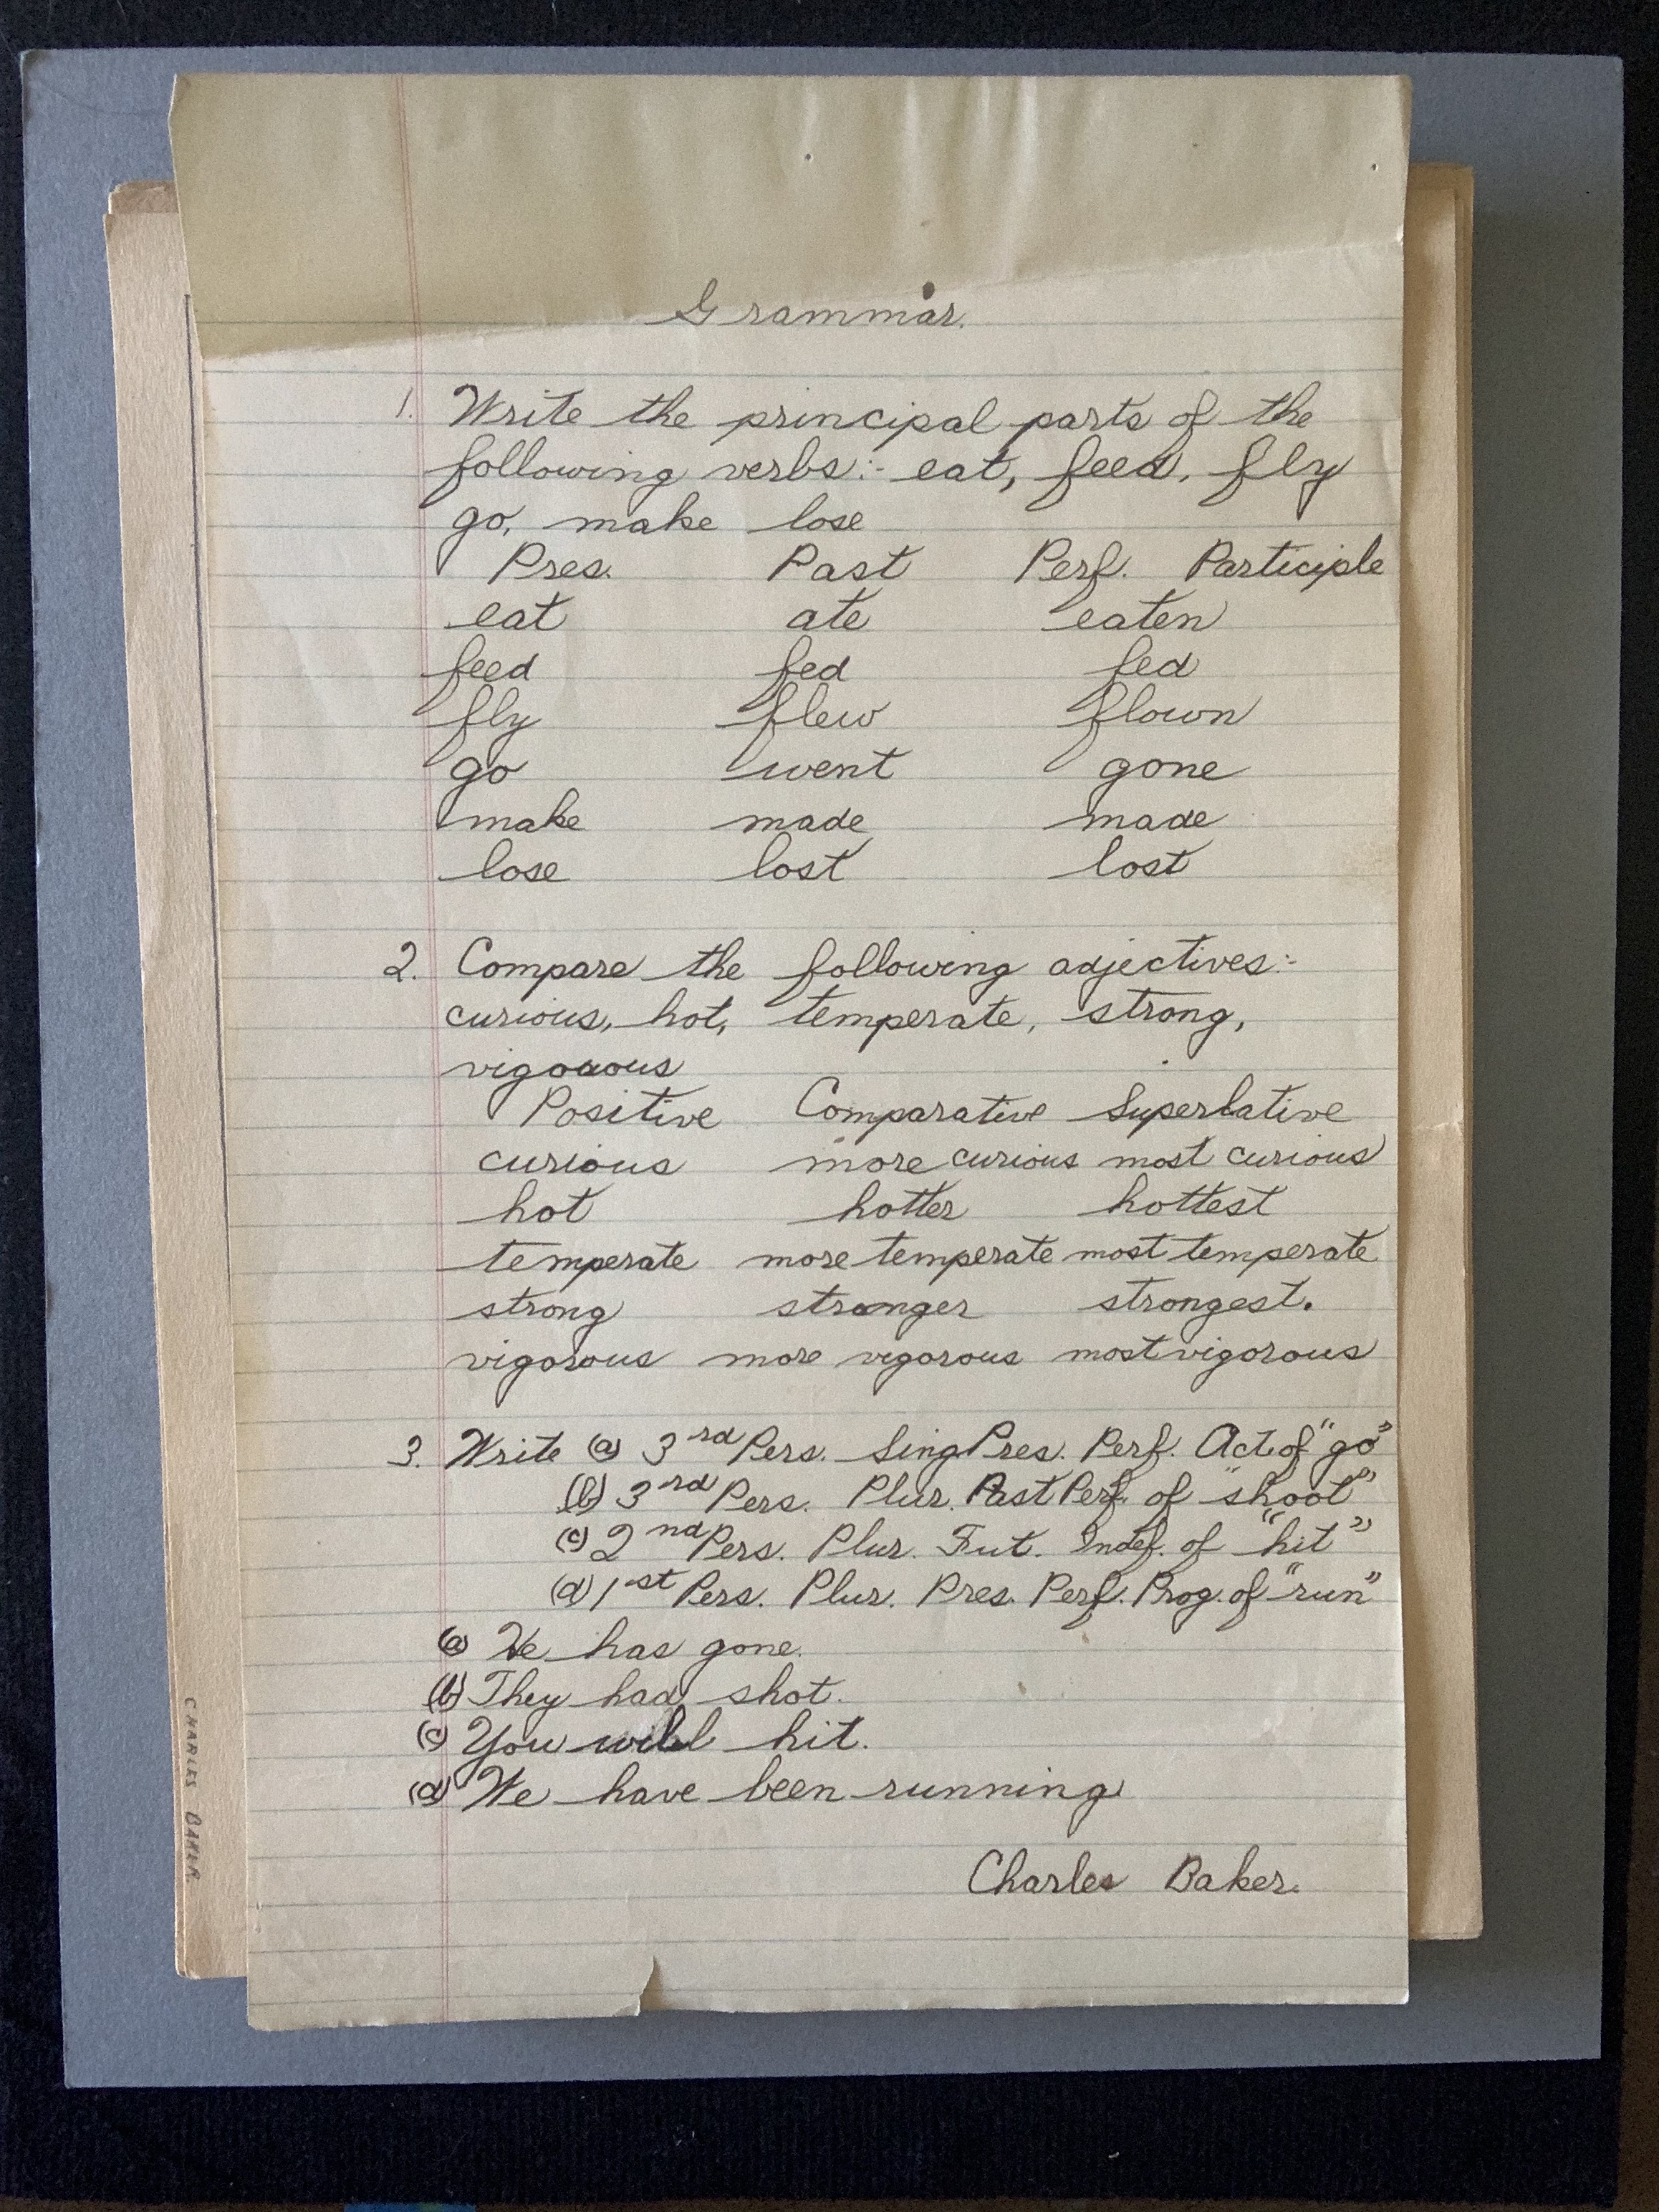 Grammar.
1. Write the principal parts of the
following verbs:- eat, feed, fly
go, make lose
Pres. Past Perf. Participle
eat ate eaten
feed fed fed
fly flew flown
go went gone
make made made
lose lost lost
2. Compare the following adjectives:-
curious, hot, temperate, strong,
vigorous
Positive Comparative Superlative
curious more curious most curious
hot hotter hottest
temperate more temperate most temperate
strong stronger strongest.
vigorous more vigorous most vigorous
3. Write (a) 3rd Pers. Sing Pres. Perf. Act. of "go"
(b) 3rd Pers. Plur. Past Perf. of "shoot"
(c) 2nd Pers. Plur. Fut. Indef. of "hit"
(d) 1st Pers. Plur. Pres. Perf. Prog. of "run"
(a) He has gone.
(b) They had shot.
(c) You will hit.
(d) We have been running
Charles Baker.
CHARLES BAKER